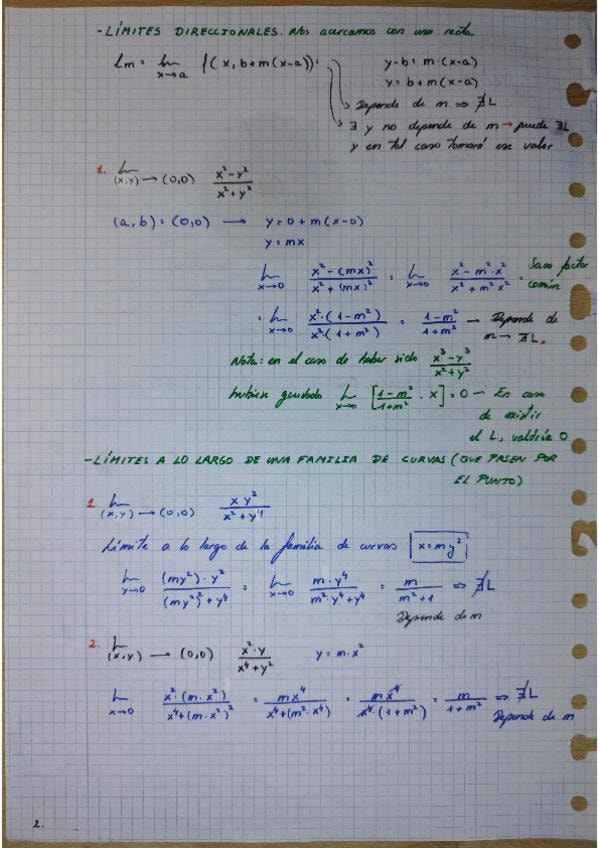 - LÍMITES DIRECCIONALES. Nos acercamos con una recta
Lm = lim x→a f(x, b+m(x-a)): y-b = m·(x-a)
y = b+m(x-a)
Depende de m ⇒ ∄L
∃ y no depende de m → puede ∃L
y en tal caso tomará ese valor
1. lim (x,y)→(0,0) x²-y² / x²+y²
(a,b) = (0,0) → y = 0+m(x-0)
y = mx
lim x→0 x²-(mx)² / x²+(mx)² = lim x→0 x²-m²·x² / x²+m²x² = Saco factor común
= lim x→0 x²·(1-m²) / x²·(1+m²) = 1-m² / 1+m² → Depende de
m → ∄L.
Nota: en el caso de haber sido x³-y³ / x²+y²
hubiese quedado lim x→0 [1-m² / 1+m² · x] = 0 → En caso
de existir
el L, valdría 0
- LÍMITES A LO LARGO DE UNA FAMILIA DE CURVAS (QUE PASEN POR
EL PUNTO)
1. lim (x,y)→(0,0) xy² / x²+y⁴
Límite a lo largo de la familia de curvas x = my²
lim y→0 (my²)·y² / (my²)²+y⁴ = lim x→0 m·y⁴ / m²·y⁴+y⁴ = m / m²+1 ⇒ ∄L
Depende de m
2. lim (x,y)→(0,0) x²·y / x⁴+y² y = m·x²
lim x→0 x²·(m·x²) / x⁴+(m·x²)² = mx⁴ / x⁴+(m²·x⁴) = mx⁴ / x⁴·(1+m²) = m / 1+m² ⇒ ∄L
Depende de m
2.